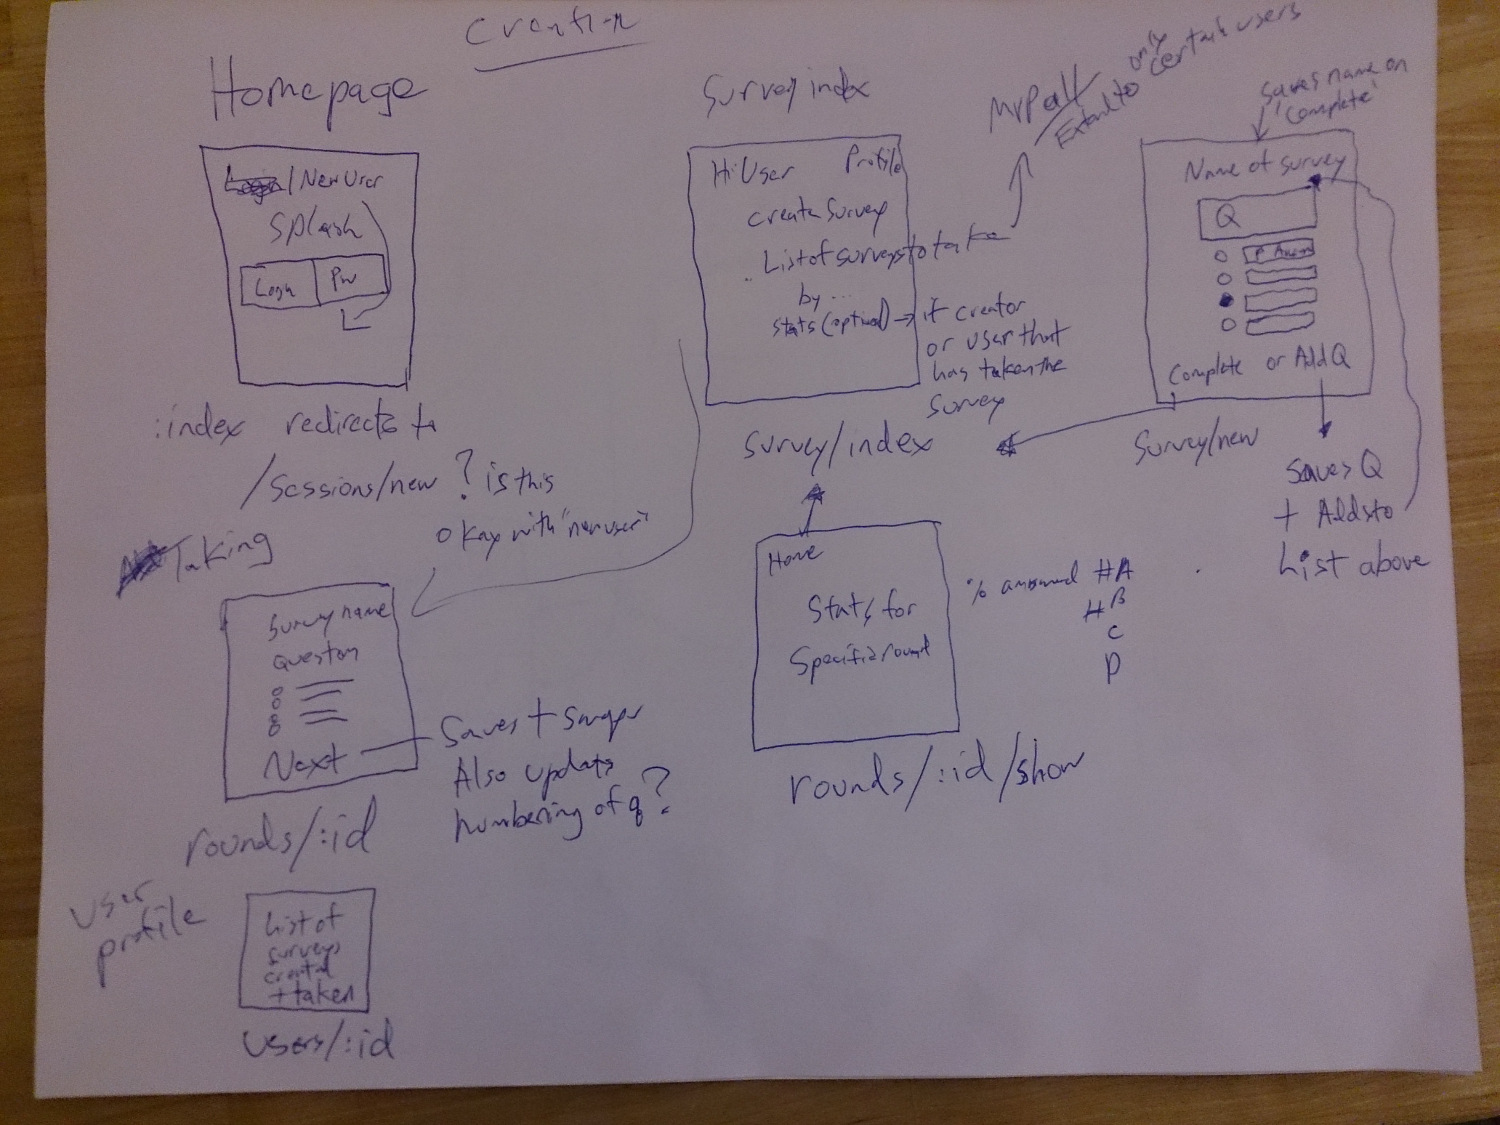 Creation
Homepage
Login / New User
Splash
Login
PW
:index redirects to
/sessions/new ? is this
okay with "new user"
Survey index
Hi User
Profile
create survey
List of surveys to take
by ...
stats (optional) → if creator
or user that
has taken the
survey
survey/index
MVP all
Extend to only
certain users
saves name on
'complete'
Name of survey
Q
Complete or Add Q
survey/new
Saves Q
+ Adds to
List above
Taking
Survey name
question
Next
Saves +
Also update
numbering of q?
rounds/:id
Home
Stats for
Specific round
% answered #A
#B
C
D
rounds/:id/show
user
profile
List of
surveys
created
+ taken
users/:id